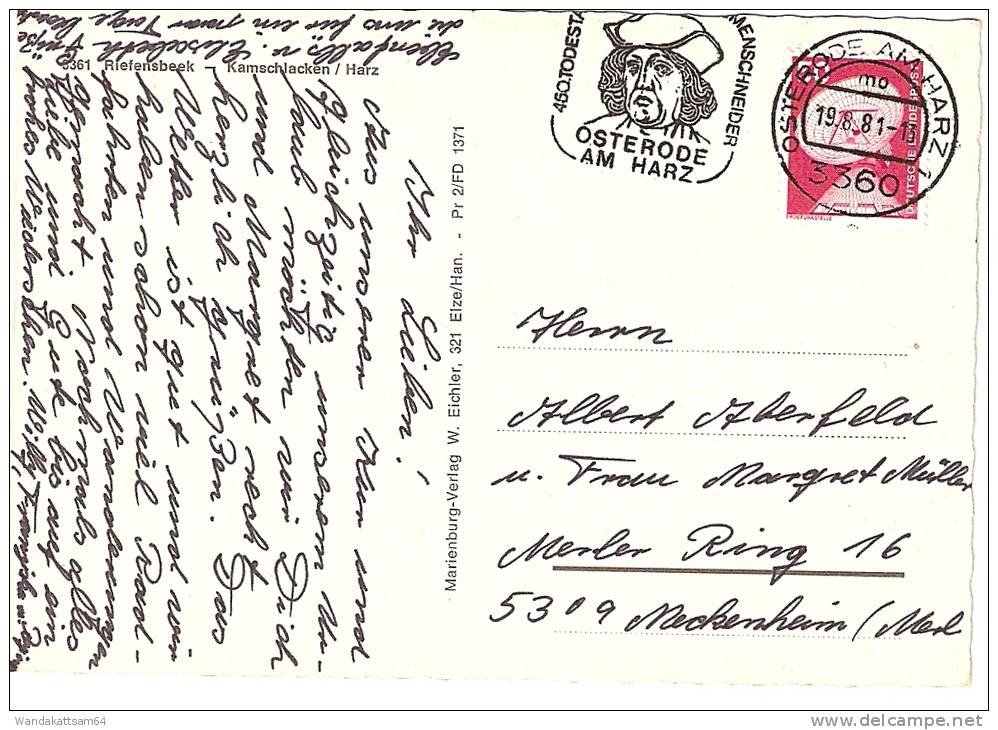 3361 Riefensbeek – Kamschlacken / Harz
Ihr Lieben!
Aus unserer Kur und
gleichzeitig unserem Ur-
laub möchten wir Dich
und Margret recht
herzlich grüßen. Das
Wetter ist gut und wir
haben schon viel Rad-
fahrten und Wanderungen
gemacht. Nochmals alles
Liebe und Gute bis auf ein
frohes Wiedersehen. Willy,
Ebenfalls v. Elisabeth Grüße
die uns für ein paar Tage
Marienburg-Verlag W. Eichler, 321 Elze/Han. - Pr 2/FD 1371
450.TODESTA
MENSCHNEIDER
OSTERODE
AM HARZ
OSTERODE AM HARZ 1
mo
19.8.81-13
3360
DEUTSCHE BUNDESPOST
ERDEFUNKSTELLE
Herrn
Albert Aberfeld
u. Frau Margret Müller
Merler Ring 16
5309 Meckenheim (Merl
Wandakattsam64
delcampe.net